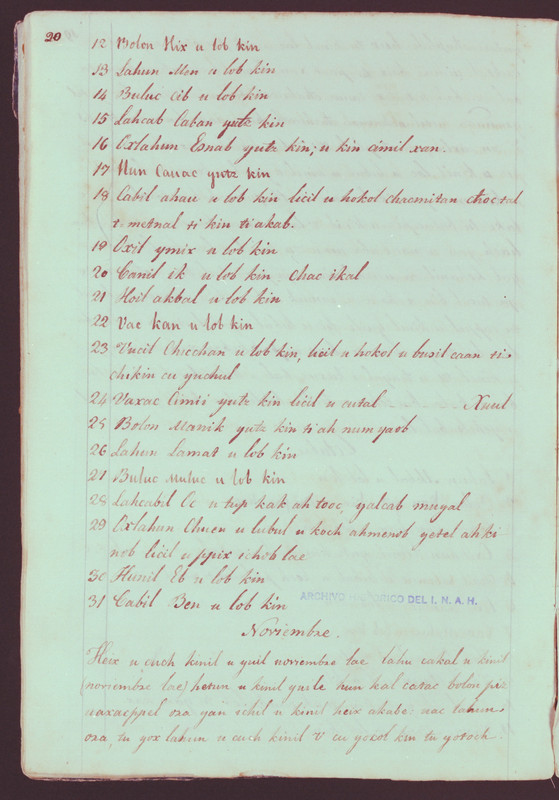 20
12 Bolon Hix u lob kin
13 Lahun Men u lob kin
14 Buluc Cib u lob kin
15 Lahcab Caban yutz kin
16 Oxlahun Esnab yutz kin; u kin cimil xan.
17 Hun Cauac yutz kin
18 Cabil ahau u lob kin licil u hokol chacmitan choctal
t metnal ti kin ti akab.
19 Oxil ymix u lob kin
20 Canil ik u lob kin, chac ikal
21 Hoil akbal u lob kin
22 Vac kan u lob kin
23 Vucil Chicchan u lob kin, licil u hokol u busil caan ti
chikin cu yuchul
24 Vaxac Cimii yutz kin licil u cutal - - - Xuul
25 Bolon Manik yutz kin ti ah numyaob
26 Lahun Lamat u lob kin
27 Buluc Muluc u lob kin
28 Lahcabil Oc u tup kak ah tooc, yalcab muyal
29 Oxlahun Chuen u lubul u koch ahmenob yetel ahki
nob licil u ppix ichob lae
30 Hunil Eb u lob kin
31 Cabil Ben u lob kin
ARCHIVO HISTORICO DEL I. N. A. H.
Noviembre.
Heix u cuch kinil u yuil noviembre lae lahu cakal u kinil
(noviembre lae) hetun u kinil yaile hun kal catac bolon piz
uaxacppel ora yan ichil u kinil heix akabe uac lahun
ora, tu yox lahun u cuch kinil V cu yocol kin tu yotoch.